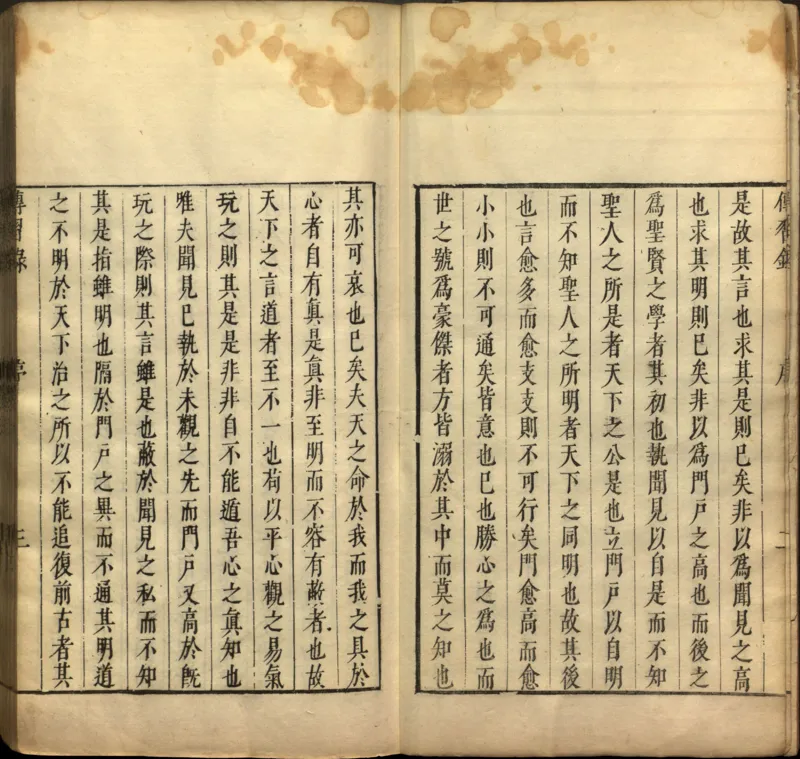 傳習錄 序 二
是故其言也求其是則已矣非以爲聞見之高
也求其明則已矣非以爲門戸之高也而後之
爲聖賢之學者其初也執聞見以自是而不知
聖人之所是者天下之公是也立門戸以自明
而不知聖人之所明者天下之同明也故其後
也言愈多而愈支支則不可行矣門愈高而愈
小小則不可通矣皆意也已也勝心之爲也而
世之號爲豪傑者方皆溺於其中而莫之知也
其亦可哀也已矣夫天之命於我而我之具於
心者自有眞是眞非至明而不容有蔽者也故
天下之言道者至不一也苟以平心觀之易氣
玩之則其是是非非自不能遁吾心之眞知也
唯夫聞見已執於未觀之先而門戸又高於旣
玩之際則其言雖是也蔽於聞見之私而不知
其是指雖明也隔於門戸之異而不通其明道
之不明於天下治之所以不能追復前古者其
傳習錄 序 三